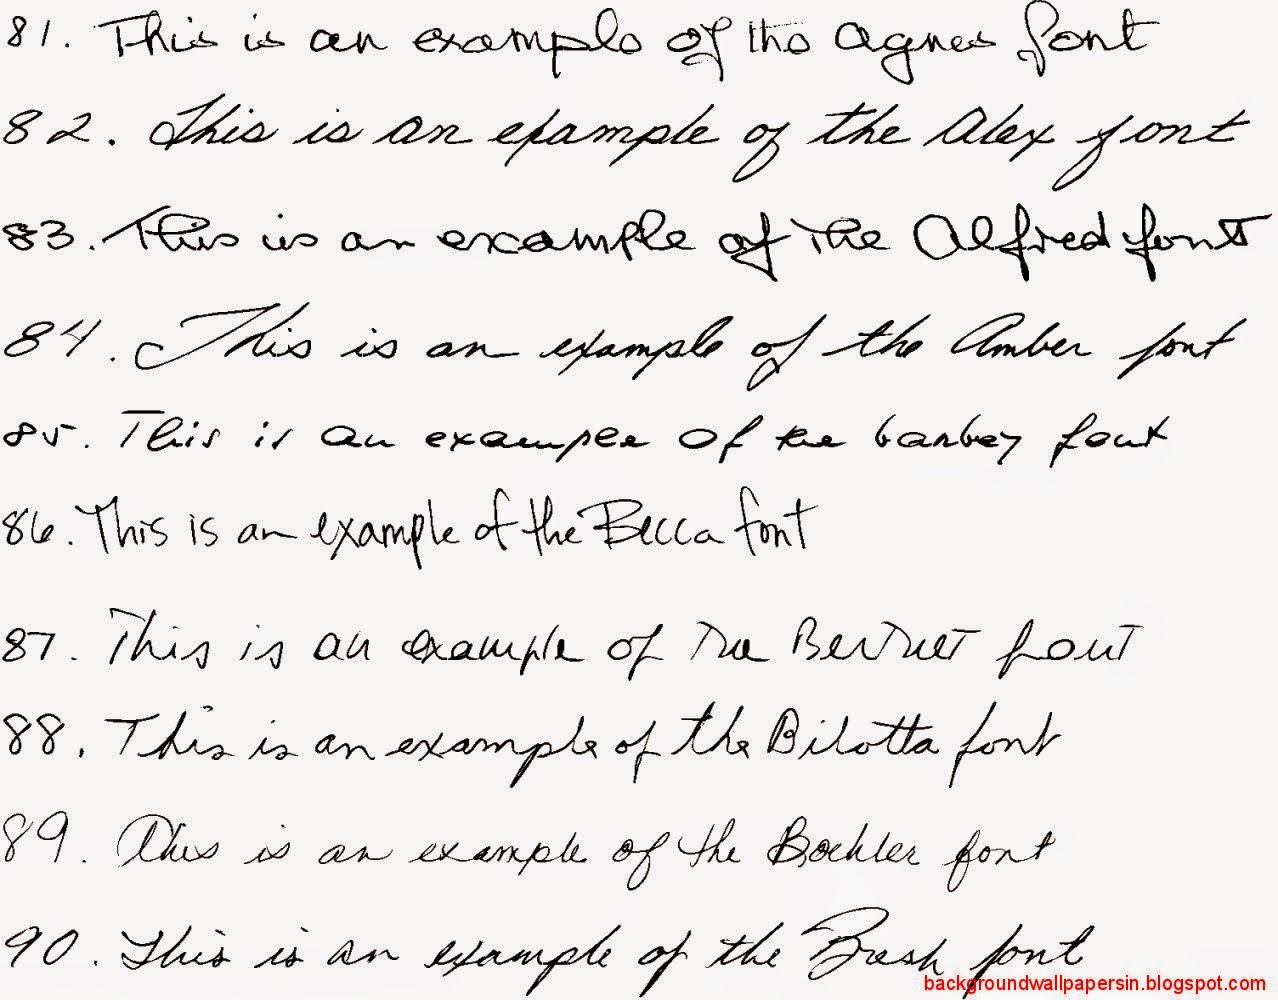 81. This is an example of the Agnes font
82. This is an example of the Alex font
83. This is an example of the Alfred font
84. This is an example of the Amber font
85. This is an example of the barbey font
86. This is an example of the Becca font
87. This is an example of the font
88. This is an example of the Bilotta font
89. This is an example of the font
90. This is an example of the font
backgroundwallpapersin.blogspot.com